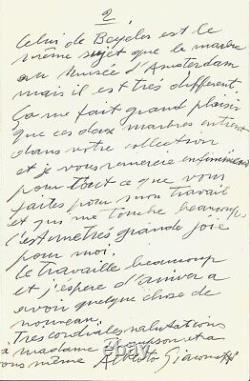 2.
Celui de Bayeler est le
même sujet que le marbre
au Musée d'Amsterdam
mais il est très different.
Ça me fait grand plaisir
que ces deux marbres entrent
dans votre collection
et je vous remercie enfiniment
pour tout ce que vous
faites pour mon travail
et qui me touche beaucoup
c'est une très grande joie
pour moi.
Je travaille beaucoup
et j'espere d'arriver a
avoir quelque chose de
nouveau.
Tres cordiales salutations
à madame et a
vous même Alberto Giacometti
ebay